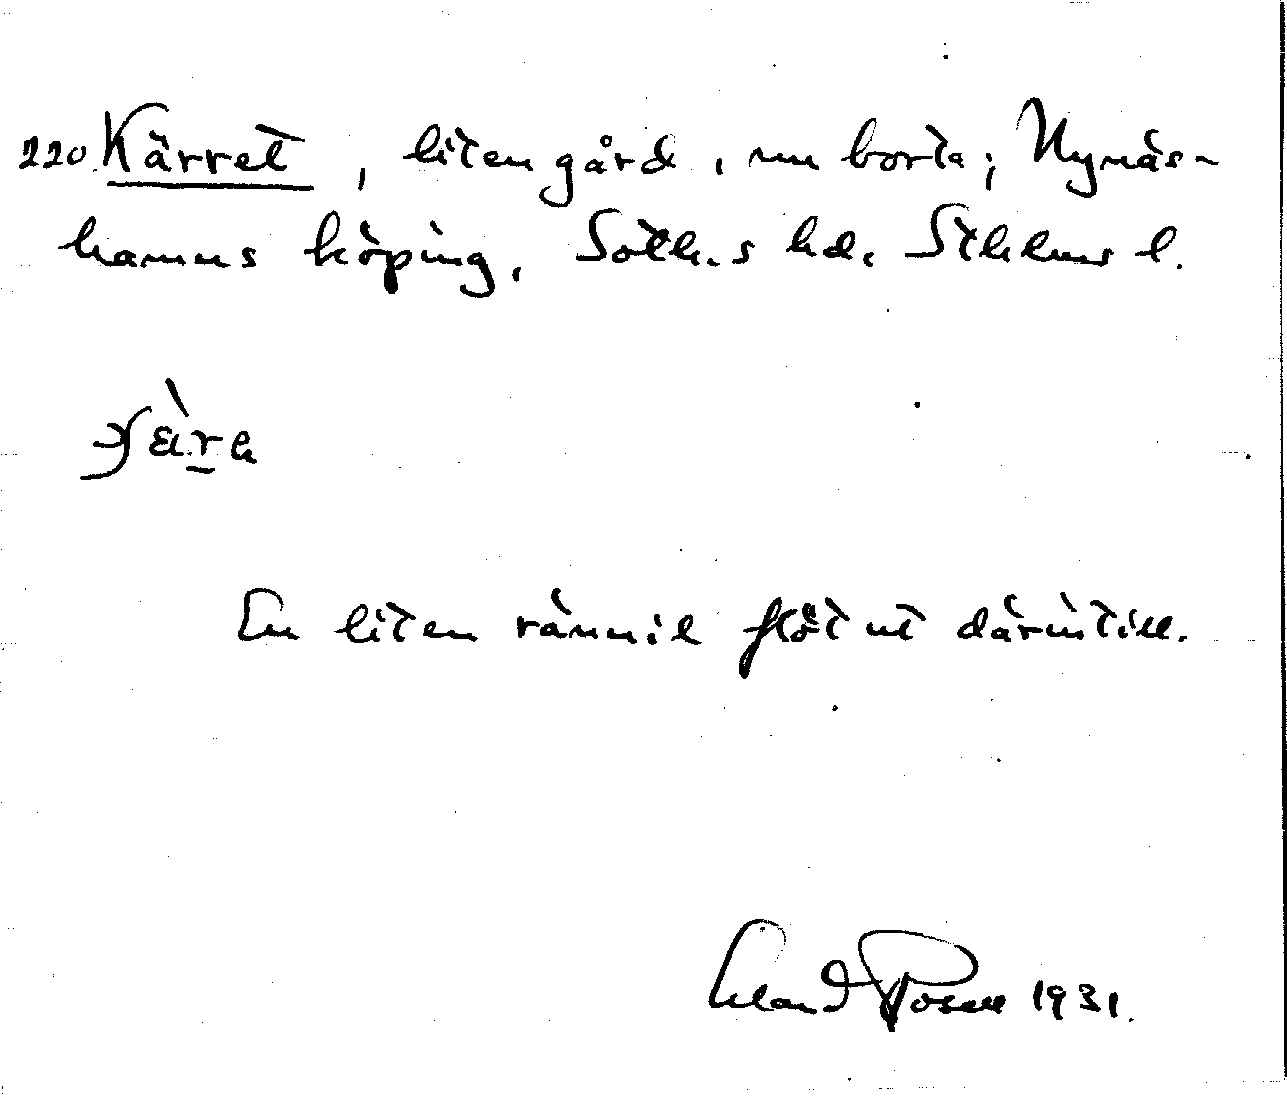 220. Kärret, liten gård, nu borta; Nynäs-
hamns köping, Soth.s hd. Sthlms l.
En liten rännil flöt ut därintill.
1931.